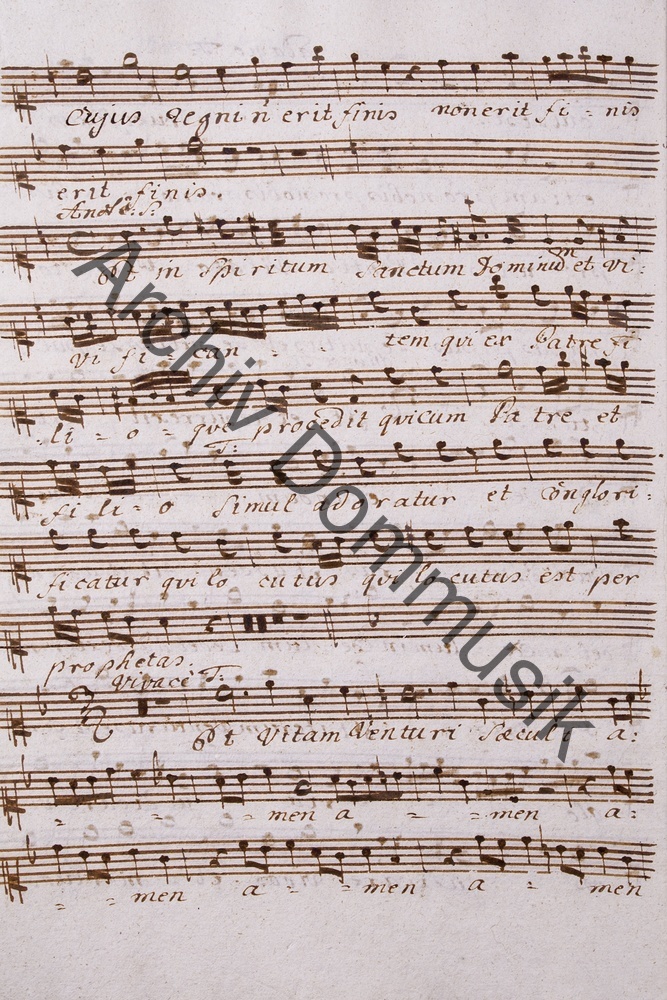 Cujus Regni n erit finis non erit fi - nis
erit finis.
Andte: S:
Et in Spiritum Sanctum Dominum et vi:
vi fi - can - - tem qui ex Patre fi
li - o - que procedit qui cum Pa tre et
T:
fi li - o Simul adoratur et Conglori:
ficatur qui lo cutus qui lo cutus est per
prophetas.
Vivace T:
Et Vitam Venturi Sæculi a:
- - - men a - - men a:
- - men a - - men a - men
Archiv Dommusik